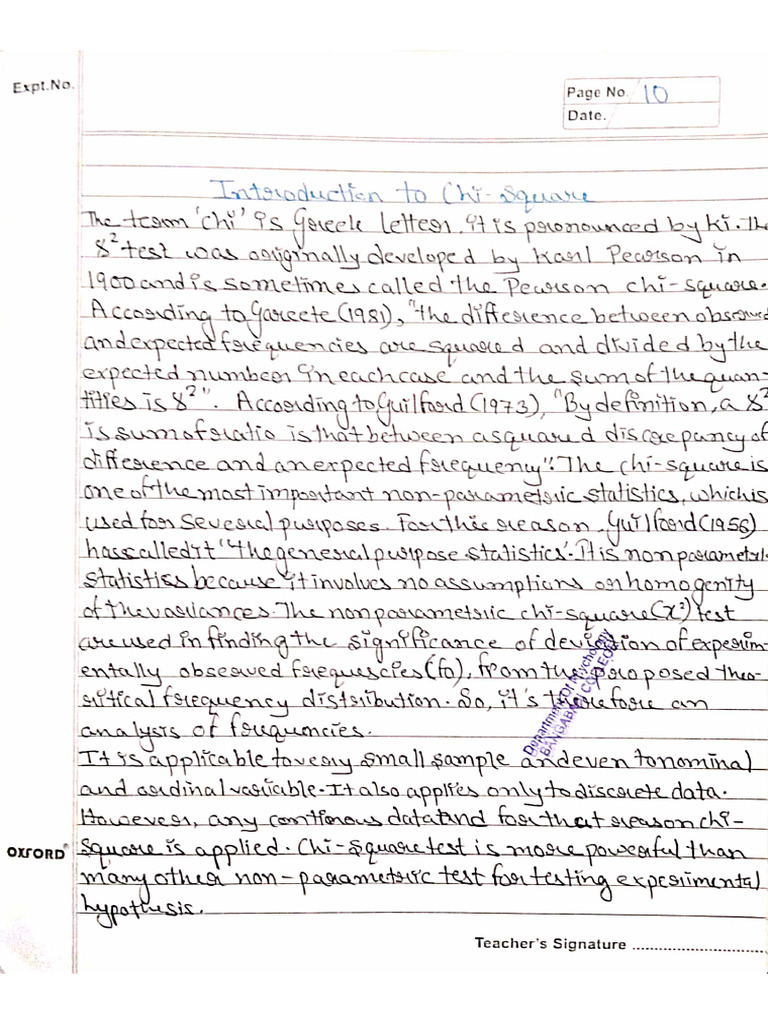 Expt.No.
Page No. 10
Date.
Introduction to Chi-square
The term 'chi' is Greek letter. it is pronounced by ki. The
8² test was originally developed by Karl Pearson in
1900 and is sometimes called the Pearson chi-square.
According to Gareete (1981), "the difference between observed
and expected frequencies are squared and divided by the
expected number in each case and the sum of the quan-
tities is 8²". According to Guilford (1973), "By definition, a 8²
is sum of ratio is that between a squared discrepancy of
difference and an expected frequency". The chi-square is
one of the most important non-parametric statistics, which is
used for several purposes. For this reason, Guilford (1956)
has called it 'the general purpose statistics'. It is non parametric
statistiss because it involves no assumptions or homogenity
of the variances. The non parametric chi-square (x²) test
are used in finding the significance of deviation of experim-
entally observed frequescies (fo), from the proposed theo-
ritical frequency distribution. So, it's therefore an
analysis of frequencies.
It is applicable to very small sample and even to nominal
and ordinal variable. It also applies only to discrete data.
However, any continous data and for that reason chi-
square is applied. Chi-square test is more powerful than
many other non-parametric test for testing experimental
hypothesis.
Department Of Psychology
BANGABASI COLLEGE
OXFORD®
Teacher's Signature ...........................